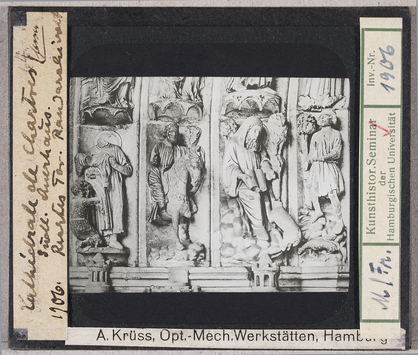 Cathédrale de Chartres
Südl. Querhaus.
Rechtes Tor. Randarchivolt
1906.
A. Krüss, Opt.-Mech. Werkstätten, Hamburg
Kunsthistor. Seminar
der
Hamburgischen Universität
Inv.-Nr.
1906